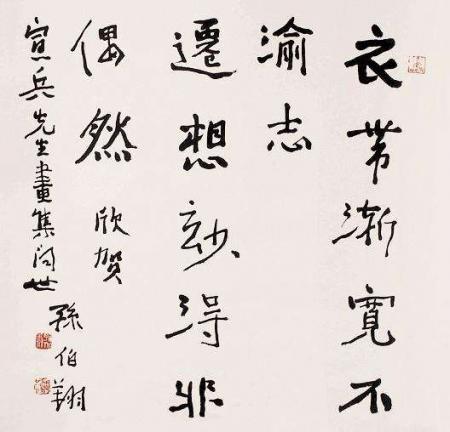 衣带渐宽不
渝志
遷想妙得非
偶然 欣贺
宪兵先生畫集问世
孫伯翔